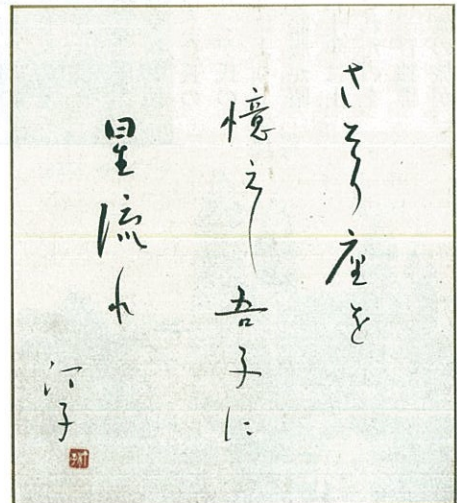 さそり座を
憶えし吾子に
星流れ
汀子